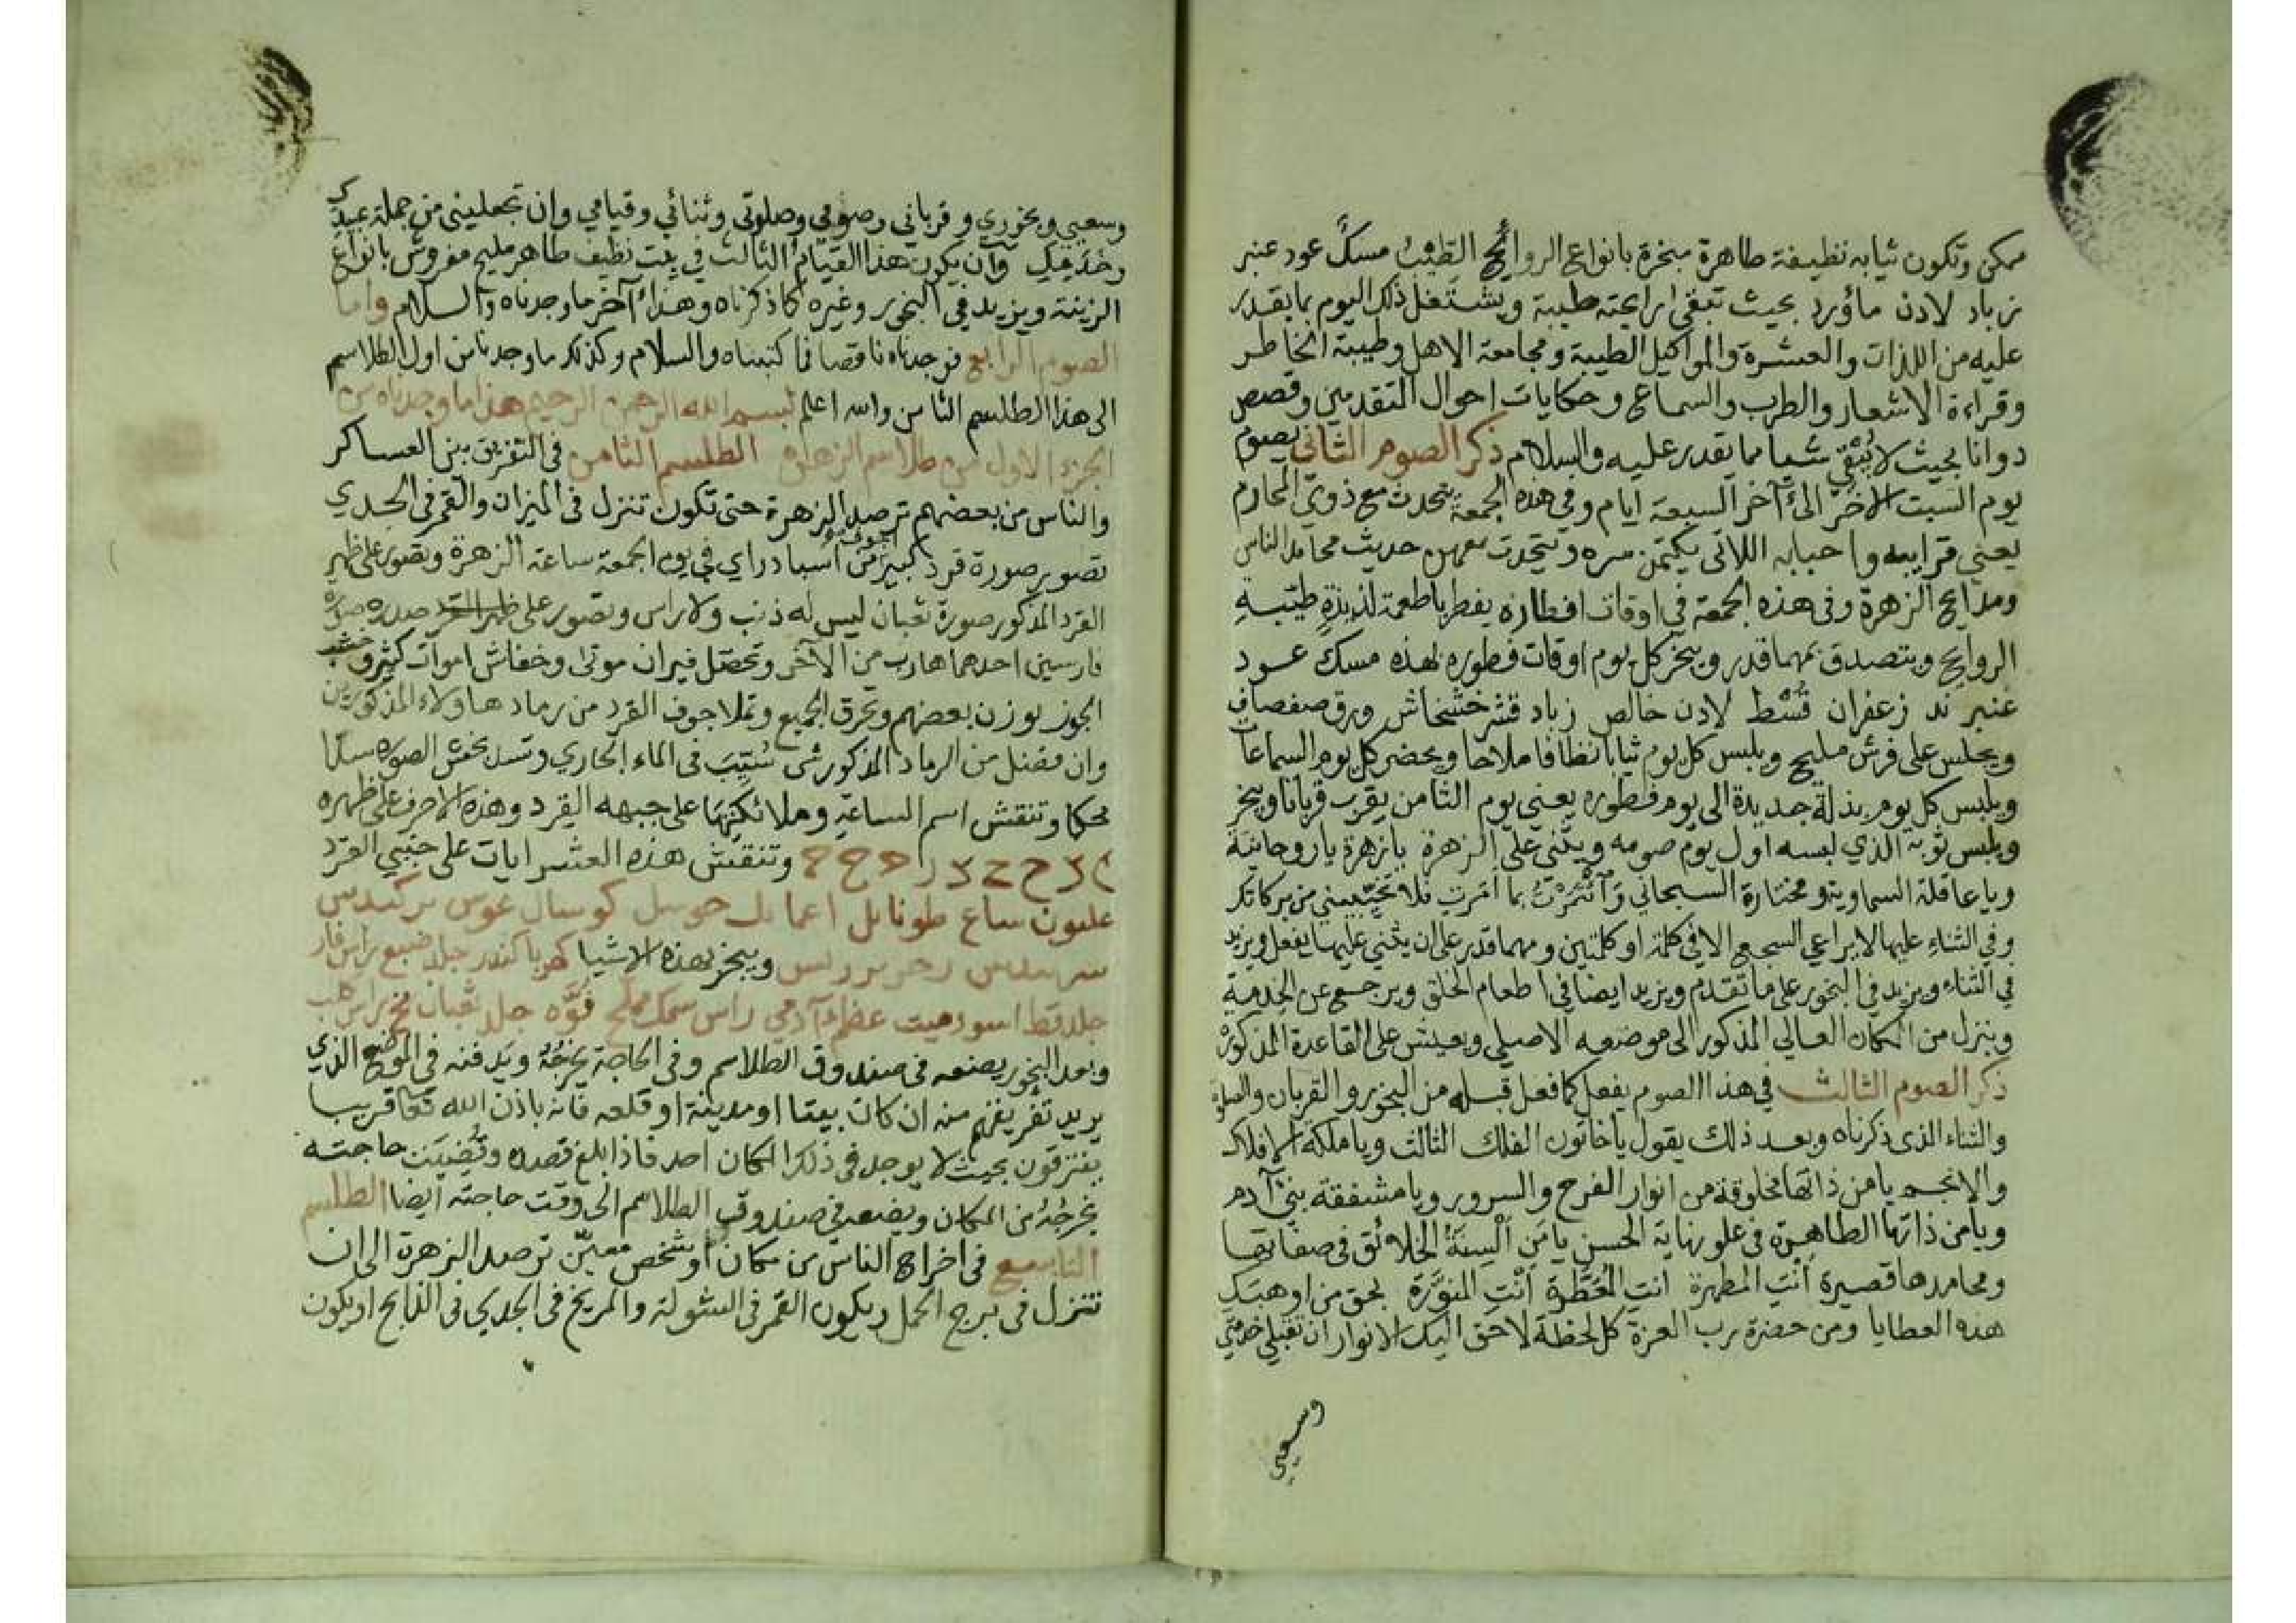 ممكن وتكون ثيابه نظيفة طاهرة مبخرة بانواع الروائح الطيب مسك عود عنبر
زباد لادن ماؤرد بحيث تبقى رايحته طيبة ويشتغل ذلك اليوم بما يقدر
عليه من اللذات والعشرة والمواكيل الطيبة ومجامعة الاهل وطيبة الخاطر
وقراءة الاشعار والطرب والسماع وحكايات احوال المتقدمين وقصص
دوانا بحيث لا يبقي شيا مما يقدر عليه والسلام ذكر الصوم الثاني يصوم
يوم السبت الاخر الى آخر السبعة ايام وفي هذه الجمعة يتحدث مع ذوي المحارم
يعني قرايبه واحبابه اللاتي يكتمن سره ويتحدث معهن حديث محامد الناس
ومدايح الزهرة وفي هذه الجمعة في اوقات افطاره يفطر باطعمة لذيذة طيبة
الروايح ويتصدق بمهما قدر ويبخر كل يوم اوقات فطوره بهذه مسك عود
عنبر ند زعفران قسط لادن خالص زباد قشر خشخاش ورق صفصاف
ويجلس على فرش مليح ويلبس كل يوم ثيابا نظافا ملاحا ويحضر كل يوم السماعات
ويلبس كل يوم بذلة جديدة الى يوم فطوره يعني يوم الثامن يقرب قربانا ويبخر
ويلبس ثوبه الذي لبسه اول يوم صومه ويثني على الزهرة يا زهرة يا روحانية
ويا عاقلة السماوية ومختارة السبحاني وآئتمرت بما امرت فلا تخيبيني من بركاتك
وفي الثناء عليها لا يراعي السجع الا في كلمة او كلمتين ومهما قدر على ان يثني عليها يفعل ويزيد
في الثناء ويزيد في البخور على ما تقدم ويزيد ايضا في اطعام الخلق ويرجع عن الخدمة
وينزل من المكان العالي المذكور الى موضعه الاصلي ويعيش على القاعدة المذكورة
ذكر الصوم الثالث في هذا الصوم يفعل كما فعل قبله من البخور والقربان والصلوة
والثناء الذي ذكرناه وبعد ذلك يقول يا خاتون الفلك الثالث ويا ملكة الافلاك
والانجم يا من ذاتها مخلوقة من انوار الفرح والسرور ويا مشفقة بني آدم
ويا من ذاتها الطاهرة في علو نهاية الحسن يا من السنة الخلائق في صفاتها
ومحامدها قصيرة انت المطهرة انت المعطرة انت المنورة بحق من اوهبك
هذه العطايا ومن حضرة رب العزة كل لحظة لاحق اليك الانوار ان تقبلي خدمتي
وسعيي
وسعيي وبخوري وقرباني وصومي وصلوتي وثنائي وقيامي وان تجعليني من جملة عبيدك
وخدمك وان يكون هذا القيام الثالث في بيت نظيف طاهر مليح مفروش بانواع
الزينة ويزيد في البخور وغيره كما ذكرناه وهذا آخر ما وجدناه والسلام واما
الصوم الرابع فوجدناه ناقصا فما كتبناه والسلام وكذلك ما وجدنا من اول الطلاسم
الى هذا الطلسم الثامن والله اعلم بسم الله الرحمن الرحيم هذا ما وجدناه من
الجزء الاول من طلاسم الزهرة الطلسم الثامن في التفريق بين العساكر
والناس من بعضهم ترصد الزهرة حتى تكون تنزل في الميزان والقمر في الجدي
تصوير صورة قرد كبير اجوف من أسبادراي في يوم الجمعة ساعة الزهرة وتصور على ظهر
القرد المذكور صورة ثعبان ليس له ذنب ولا راس وتصور على صدره صورة
فارسين احدهما هارب من الآخر وتحصل فيران موتى وخفاش اموات كثير وخشب
الجوز بوزن بعضهم وتحرق الجميع وتملا جوف القرد من رماد هاولاء المذكورين
وان فضل من الرماد المذكور شى سيب في الماء الجاري وتسد بخش الصوره سدا
محكما وتنقش اسم الساعة وملائكتها على جبهه القرد وهذه الاحرف على ظهره
وتنقش هذه العشر ايات على جنبي القرد
ويبخر بهذه الاشيا كهربا كندر جلد ضبع راس فار
جلد قط اسود ميت عظم آدمي راس سمك مملح فوه جلد ثعبان مخ راس كلب
وبعد البخور يضعه في صندوق الطلاسم وفي الحاجة يخرجه ويدفنه في الموضع الذي
يريد تفريقهم منه ان كان بيتا او مدينة او قلعه فانه باذن الله تعا قريبا
يفترقون بحيث لا يوجد في ذلك المكان احد فاذا بلغ قصده وقضيت حاجته
يخرجه من المكان ويضعه في صندوق الطلاسم الى وقت حاجته ايضا الطلسم
التاسع في اخراج الناس من مكان او شخص معين ترصد الزهرة الى ان
تنزل في برج الحمل ويكون القمر في الشولة والمريخ في الجدي في الذابح او يكون